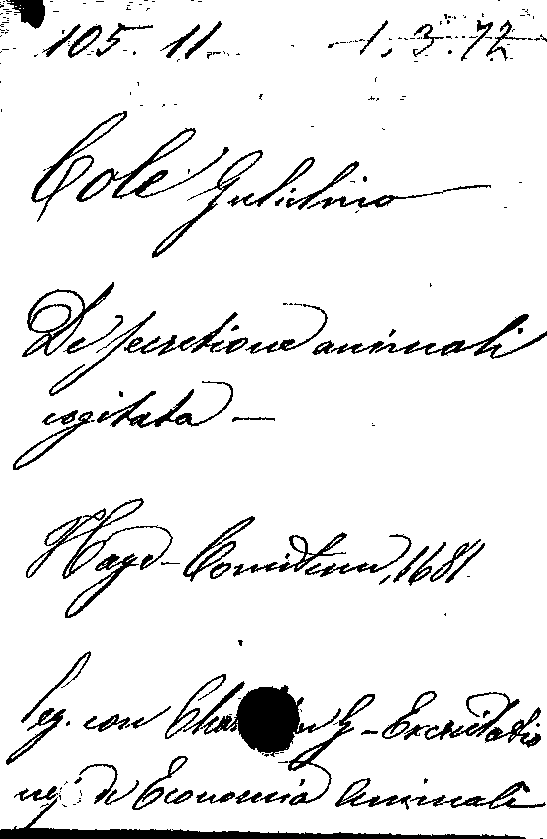 105. 11 1. 3. 72
Cole Gulielmo
De secretione animali
cogitata —
Hage-Comitum, 1681.
leg. con G - Exercitatio
de Economia Animali